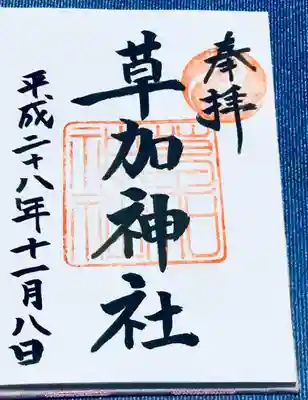 奉拝
草加神社
平成二十八年十一月八日